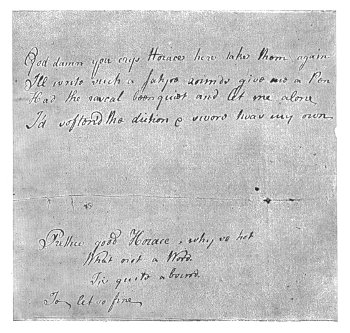 God damn you crys Horace here take them again
I'll write such a satyre zounds give me a Pen
Had the rascal been quiet and let me alone
I'd softend the diction & swore twas my own
Prithee good Horace, why so hot
What not a Word.
Tis quite absurd.
To let so fine